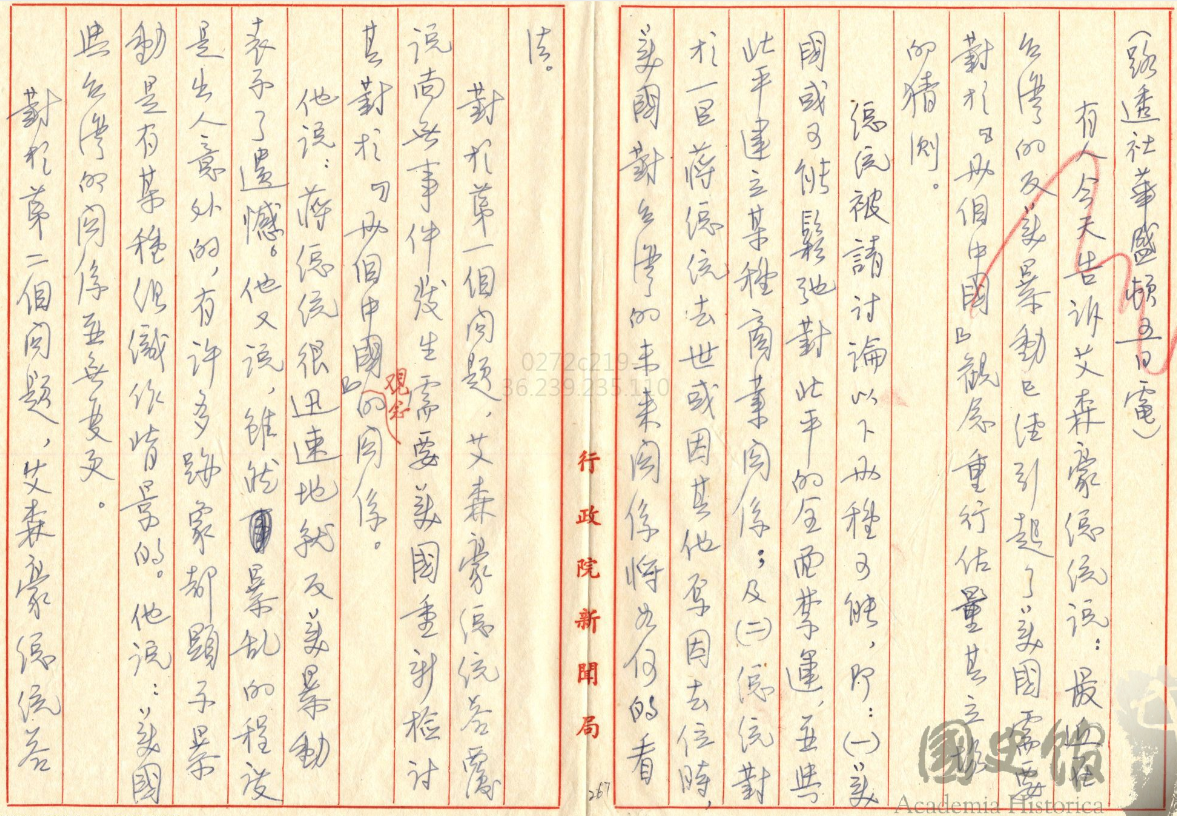 (路透社華盛頓五日電)
有人今天告訴艾森豪總統說：最近在
台灣的反美暴動已經引起了美國需要
對於『兩個中國』觀念重行估量其立場
的猜測。
總統被請討論以下兩種可能，即：(一)美
國或可能鬆弛對北平的全面禁運，並與
北平建立某種商業關係；及(二)總統對
於一旦蔣總統去世或因其他原因去位時，
美國對台灣的未來關係將如何的看
法。
對於第一個問題，艾森豪總統答覆
說尚無事件發生需要美國重新檢討
其對於『兩個中國』觀念的關係。
他說：蔣總統很迅速地就反美暴動
表示了遺憾。他又說，雖然暴亂的程度
是出人意外的，有許多跡象都顯示暴
動是有某種組織作背景的。他說：美國
與台灣的關係並無變更。
對於第二個問題，艾森豪總統答
行政院新聞局
267
0272c219-
36.239.235.110
國史館
Academia Historica